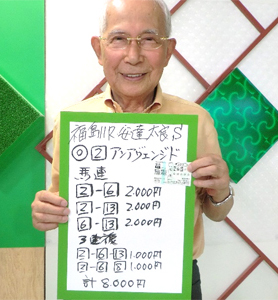 福島11R 安達太良S
◎ 2 アンアヴェンジド
馬連
2-6 2,000円
2-13 2,000円
6-13 2,000円
3連複
2-6-13 1,000円
計 8,000円